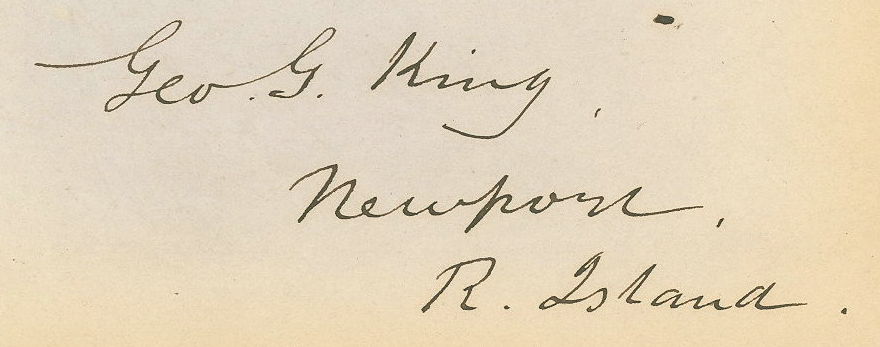 Geo. G. King,
Newport,
R. Island.